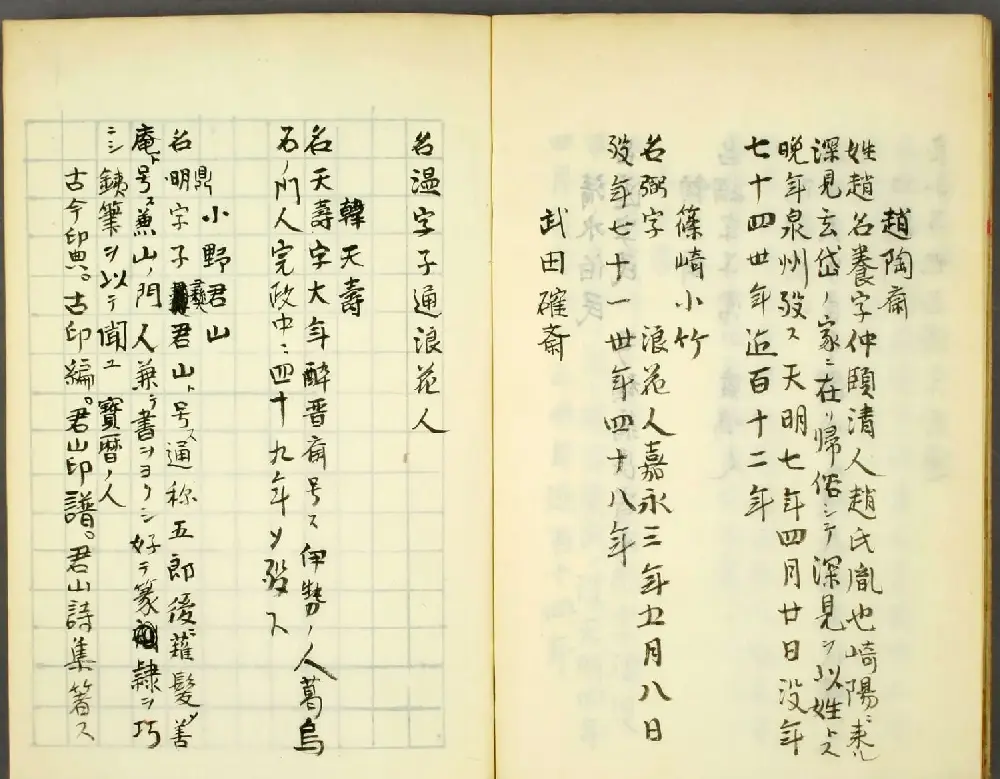 趙陶斎
姓趙名養字仲頤清人趙氏胤也崎陽ニ来ル
深見玄岱ノ家ニ在リ帰俗シテ深見ヲ以姓トス
晩年泉州歿ス天明七年四月廿日没年
七十四丗年迠百十二年
篠崎小竹
名弼字　浪花人嘉永三年五月八日
歿年七十一丗年四十八年
武田確斎
名温字子通浪花人
韓天壽
名天壽字大年酔晋斎号ス伊勢ノ人葛烏
石ノ門人完政中ニ四十九年ヲ歿ス
小野君山
名鼎明字子彝君山ト号ス通称五郎後薙髪ソ善
庵ト号ス兼山ノ門人兼テ書ヲヨクシ好テ篆隷ヲ巧
ニシ鉄筆ヲ以テ聞ユ寶暦ノ人
古今印典。古印編。君山印譜。君山詩集著ス